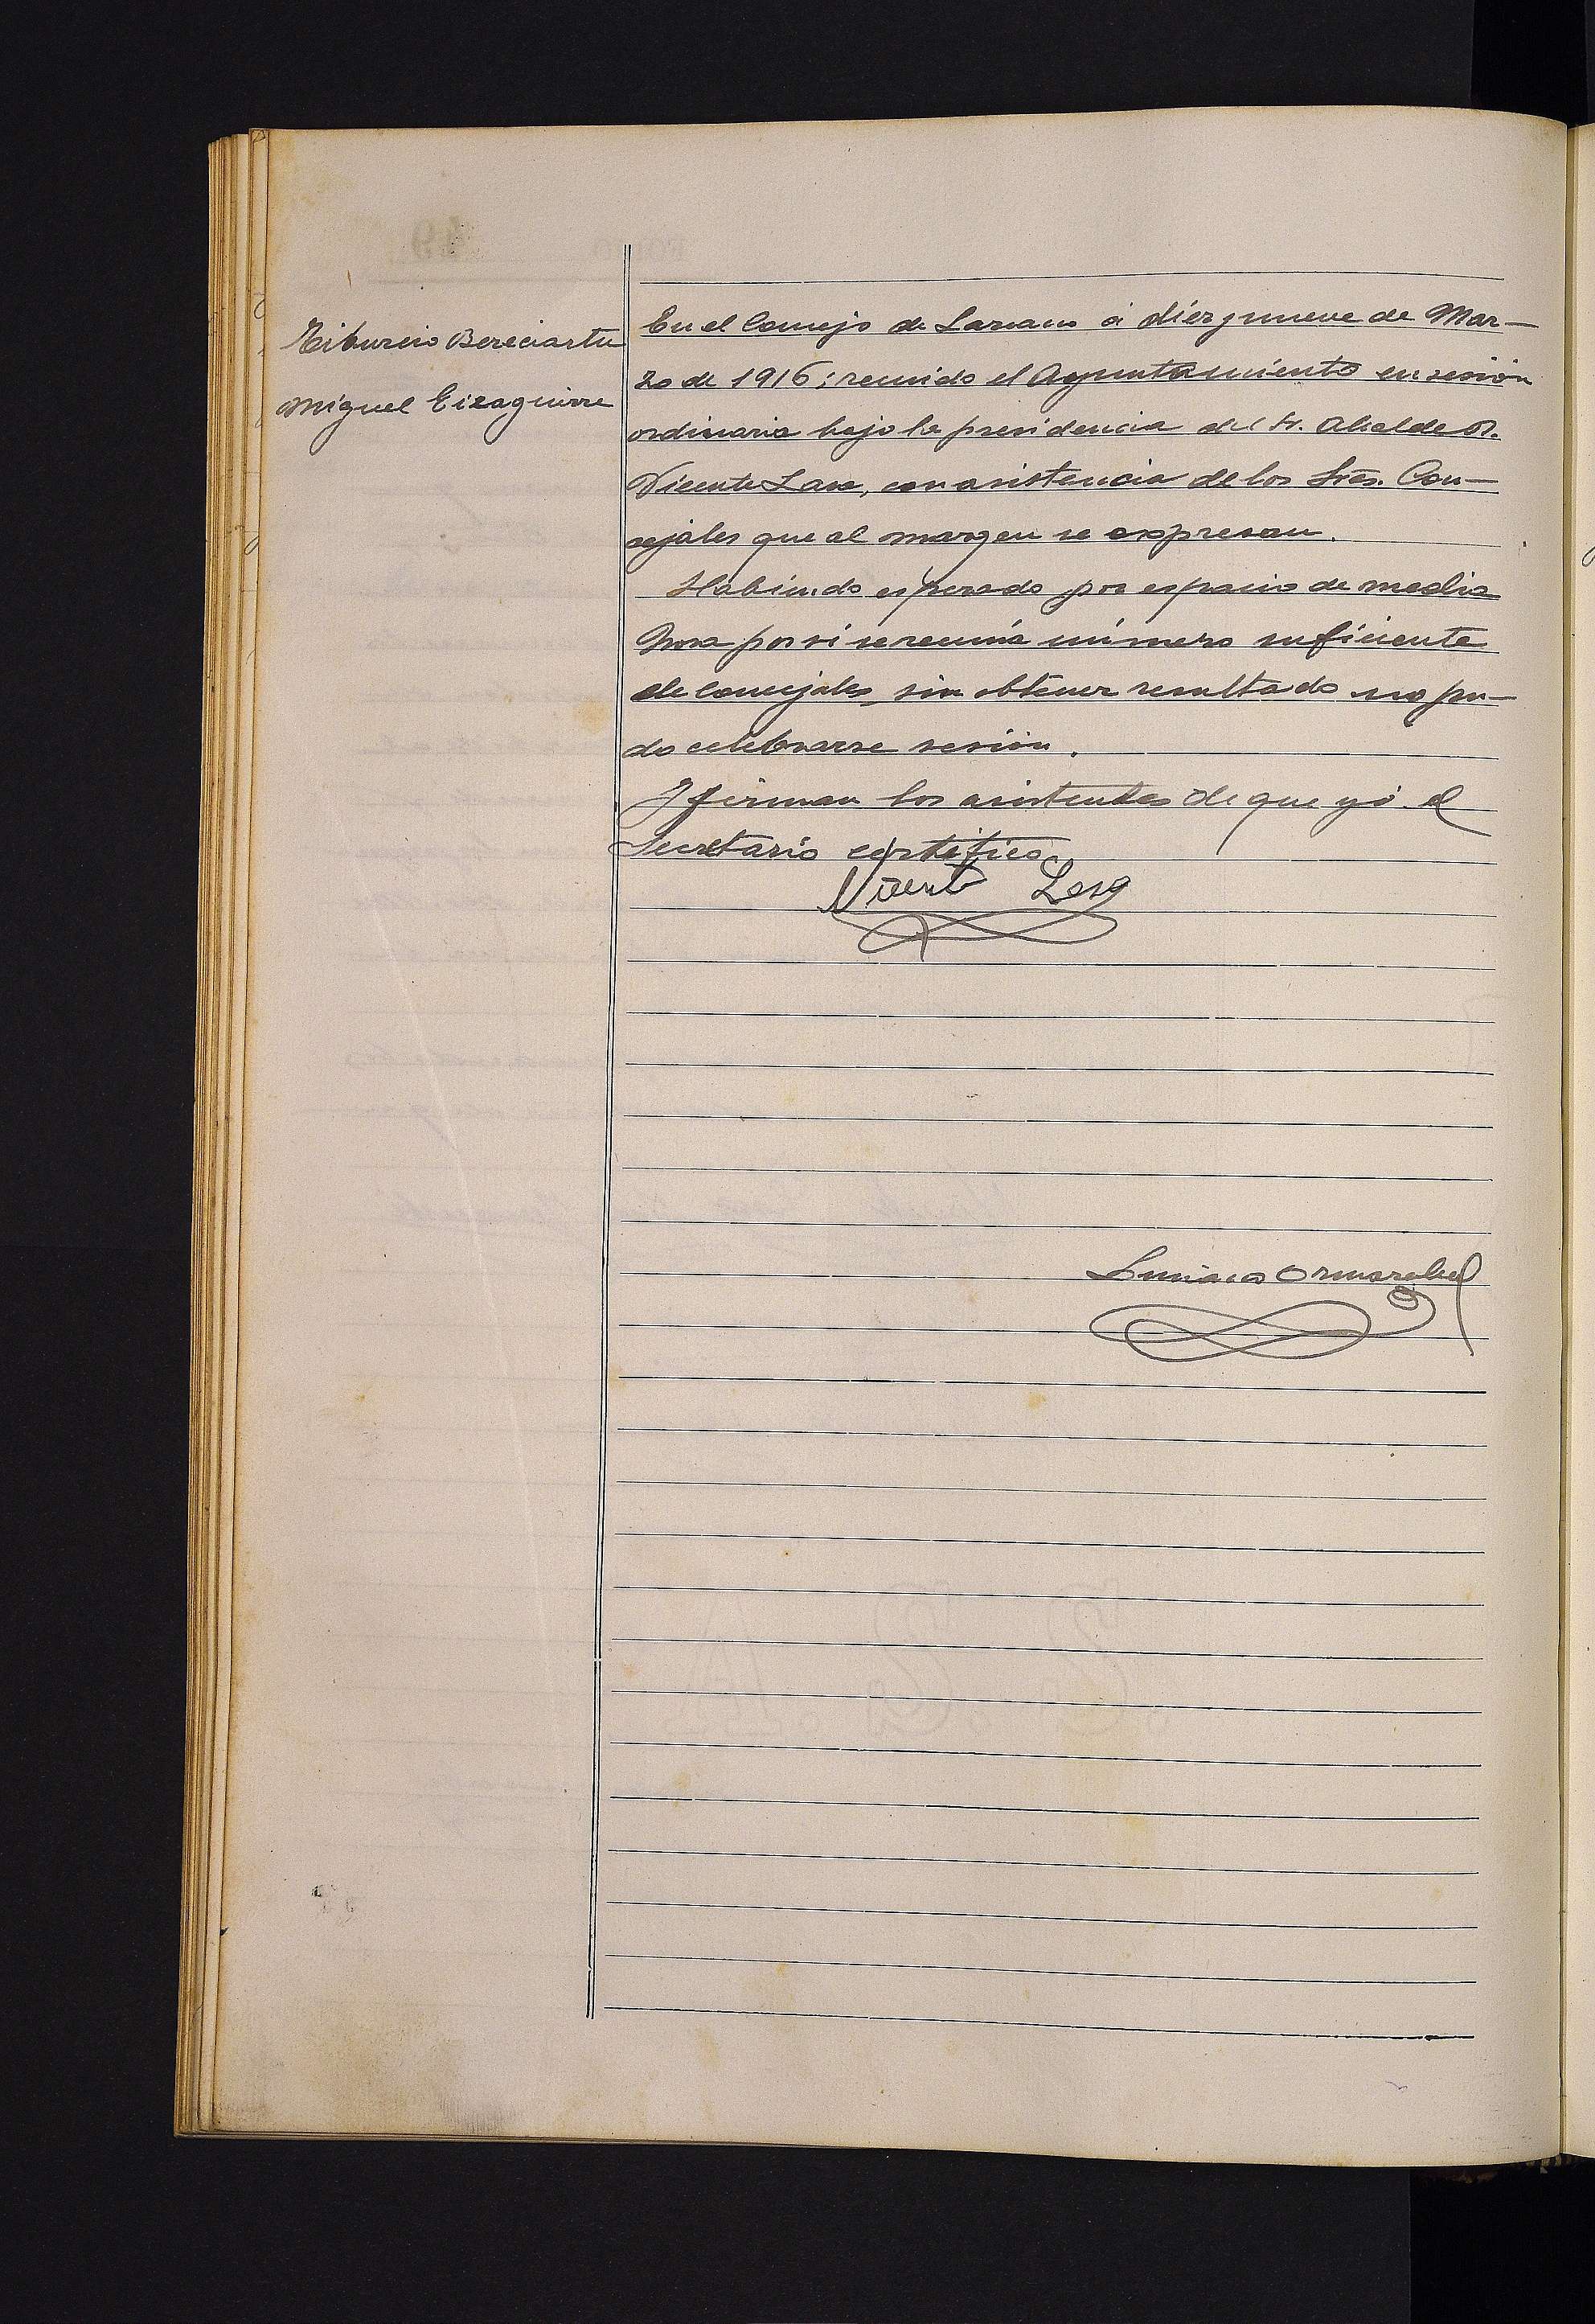 Tiburcio Bereciartu
Miguel Eizaguirre
En el Concejo de Lazcano á diez y nueve de Mar-
zo de 1916; reunido el Ayuntamiento en sesión
ordinaria bajo la presidencia del Sr. Alcalde D.
Vicente Lasa, con asistencia de los Sres. Con-
cejales que al margen se expresan.
Habiendo esperado por espacio de media
hora por si se reunía número suficiente
de concejales, sin obtener resultado no pu-
do celebrarse sesión.
Y firman los asistentes de que yó el
Secretario certifico
Vicente Lasa
Ormazabal